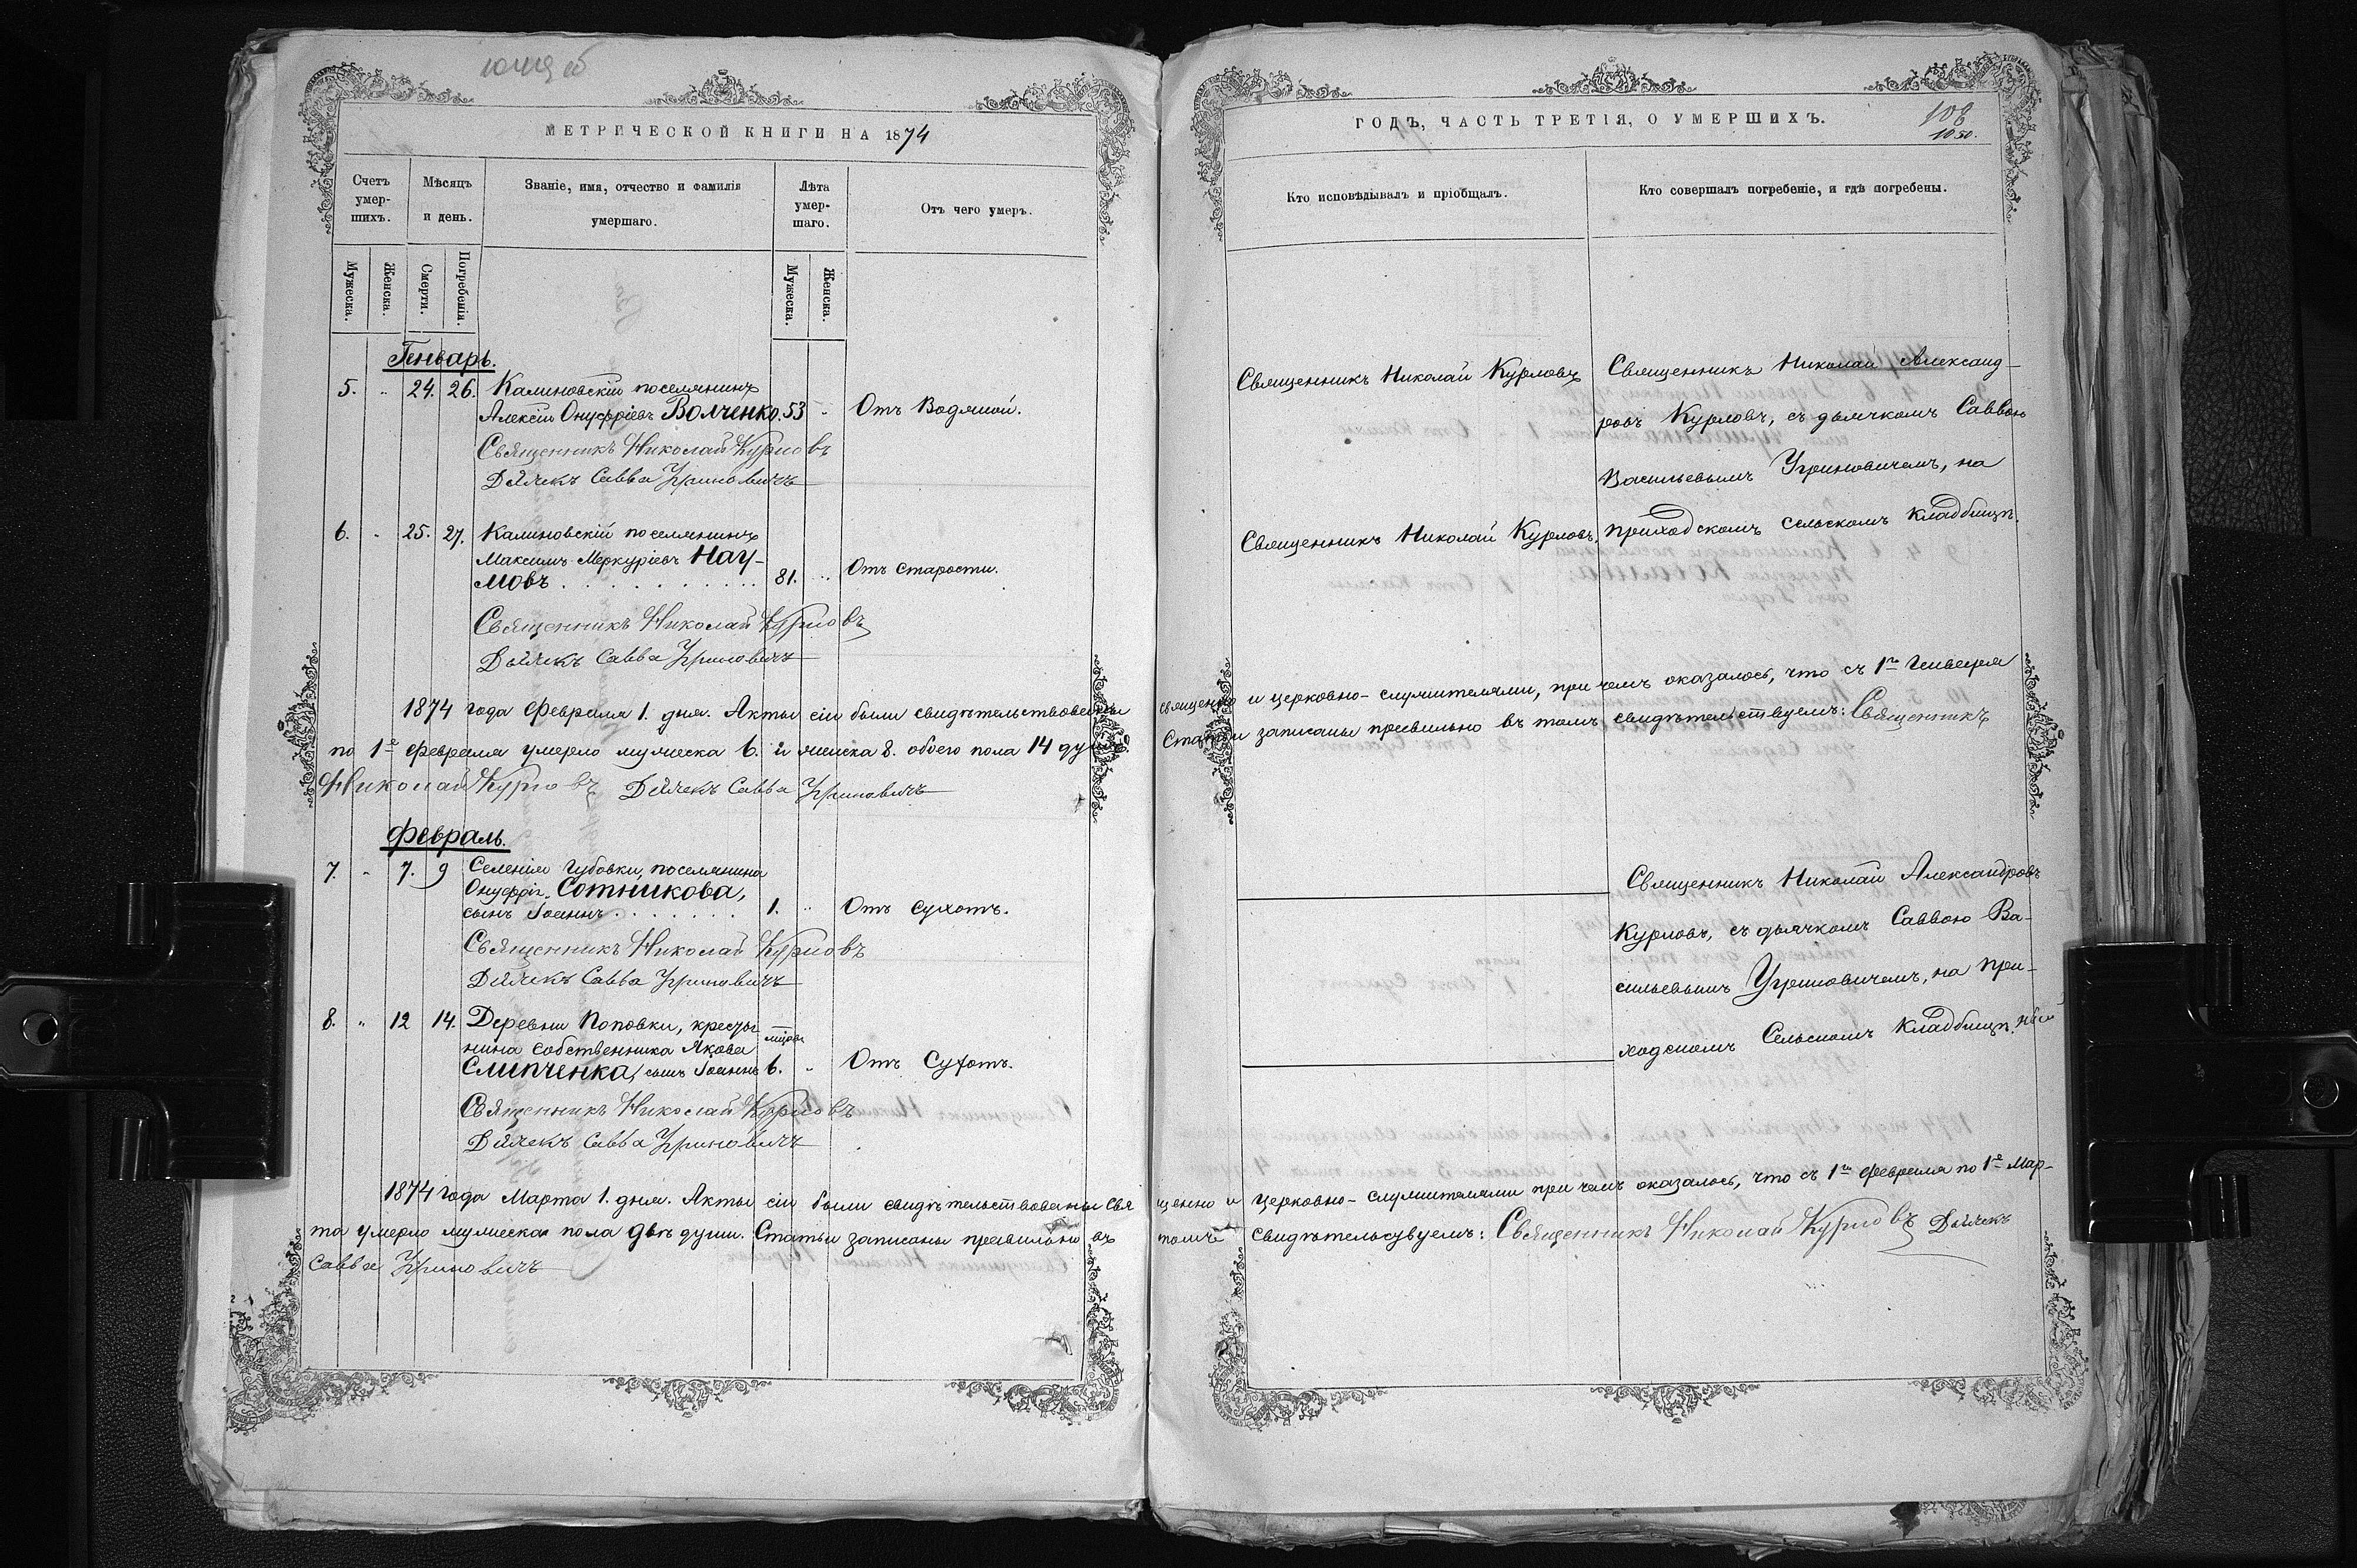 МЕТРИЧЕСКОЙ КНИГИ НА 1874
Счетъ умер-шихъ.
Мѣсяцъ и день.
Званіе, имя, отчество и фамилія умершаго.
Лѣта умер-шаго.
Отъ чего умеръ.
Мужеска.
Женска.
Смерти.
Погребенія.
Мужеска.
Женска.
Генварь.
5. " 24. 26. Калиновскій поселянинъ
Алексій Онуфріевъ Волченко. 53 " Отъ Водяной.
Священникъ Николай Курловъ
Дьячекъ Савва Угриновичъ
6. " 25. 27. Калиновскій поселянинъ
Максимъ Меркуріевъ Нау-
мовъ . . . . . . . . . 81. " Отъ старости.
Священникъ Николай Курловъ
Дьячекъ Савва Угриновичъ
1874 года Февраля 1. дня. Акты сіи были свидѣтельствованы
по 1е Февраля умерло мужеска 6. и женска 8. обоего пола 14 душъ
Николай Курловъ Дьячекъ Савва Угриновичъ
Февраль.
7. " 7. 9 Селенія Губовки, поселянина
Онуфрія Сотникова,
сынъ Іоаннъ . . . . . . . 1. " Отъ сухотъ.
Священникъ Николай Курловъ
Дьячекъ Савва Угриновичъ
8. " 12 14. Деревни Поповки, крестья
нина собственника Якова
Слипченка, сынъ Іоаннъ 6. " Отъ Сухотъ.
Священникъ Николай Курловъ
Дьячекъ Савва Угриновичъ
1874 года Марта 1. дня. Акты сіи были свидѣтельствованы свя
та умерло мужеска пола двѣ души. Статьи записаны правильно въ
Савва Угриновичъ
ГОДЪ, ЧАСТЬ ТРЕТІЯ, О УМЕРШИХЪ.
108
1050.
Кто исповѣдывалъ и пріобщалъ.
Кто совершалъ погребеніе, и гдѣ погребены.
Священникъ Николай Курловъ
Священникъ Николай Александ-
ровъ Курловъ, съ дьячкомъ Саввою
Васильевымъ Угриновичемъ, на
приходскомъ сельскомъ кладбищѣ.
Священникъ Николай Курловъ,
священно и церковно-служителями, при чемъ оказалось, что съ 1го Генваря
Статьи записаны правильно въ томъ свидѣтельствуемъ: Священникъ
Священникъ Николай Александровъ
Курловъ, съ дьячкомъ Саввою Ва-
сильевымъ Угриновичемъ, на при-
ходскомъ Сельскомъ кладбищѣ.
щенно и церковно-служителями при чемъ оказалось, что съ 1го Февраля по 1е Мар-
томъ свидѣтельсувуемъ: Священникъ Николай Курловъ Дьячекъ